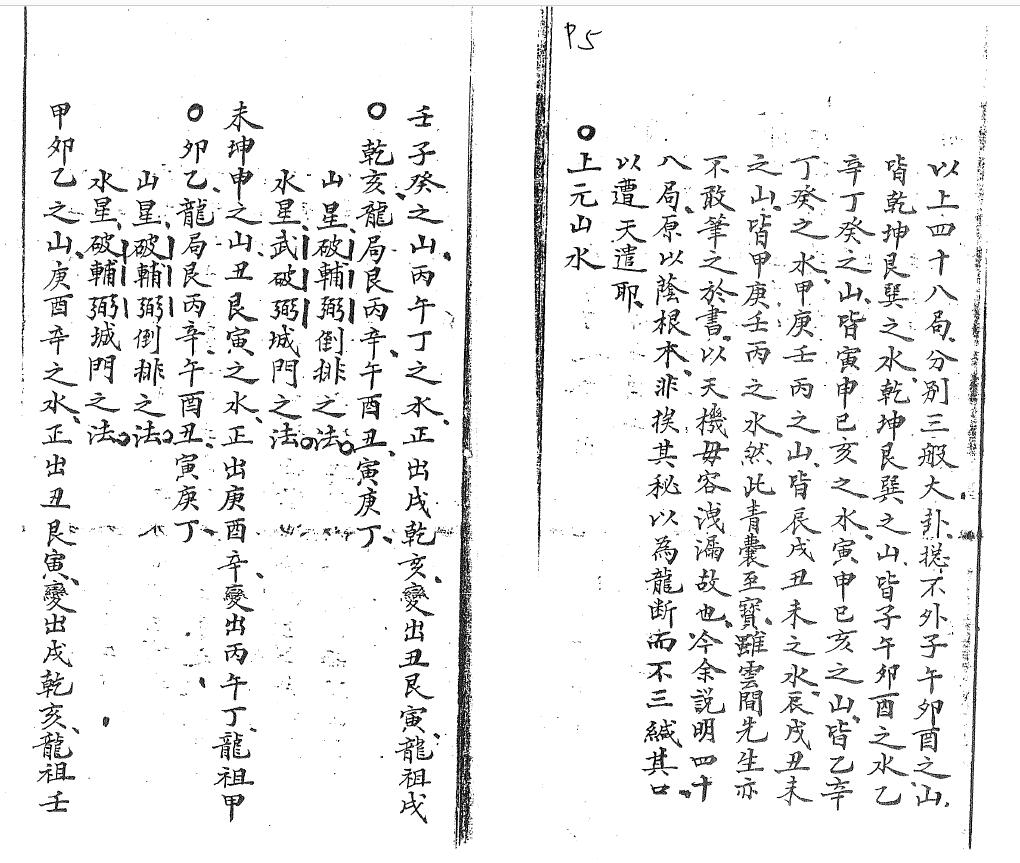 P5
以上四十八局、分别三般大卦、摠不外子午卯酉之山、
皆乾坤艮巽之水、乾坤艮巽之山、皆子午卯酉之水、乙
辛丁癸之山、皆寅申巳亥之水、寅申巳亥之山、皆乙辛
丁癸之水、甲庚壬丙之山、皆辰戌丑未之水、辰戌丑未
之山、皆甲庚壬丙之水、然此青囊至寶、雖雲間先生亦
不敢筆之於書、以天機毋容洩漏故也、今余説明四十
八局、原以蔭根本、非挨其秘以為龍断而不三緘其口、
以遭天遣耶、
○上元山水
壬子癸之山、丙午丁之水、正出戌乾亥、變出丑艮寅、龍祖戌
○乾亥、龍局艮丙辛、午酉丑、寅庚丁、
山星、破輔弼倒排之法。
水星、武破弼城門之法。
未坤申之山、丑艮寅之水、正出庚酉辛、變出丙午丁、龍祖甲
○卯乙、龍局艮丙辛、午酉丑、寅庚丁、
山星、破輔弼倒排之法。
水星、破輔弼城門之法。
甲卯乙之山、庚酉辛之水、正出丑艮寅、變出戌乾亥、龍祖壬